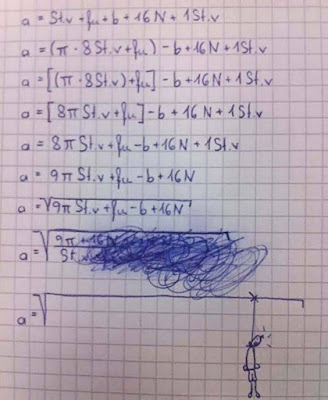 a = St.v + fμ + b + 16N + 1St.v
a = (π · 8St.v + fμ) - b + 16N + 1St.v
a = [(π · 8St.v) + fμ] - b + 16N + 1St.v
a = [8π St.v + fμ] - b + 16N + 1St.v
a = 8π St.v + fμ - b + 16N + 1St.v
a = 9π St.v + fμ - b + 16N
a = √9π St.v + fμ - b + 16N
a = √9π + 16N
St.v
a = √